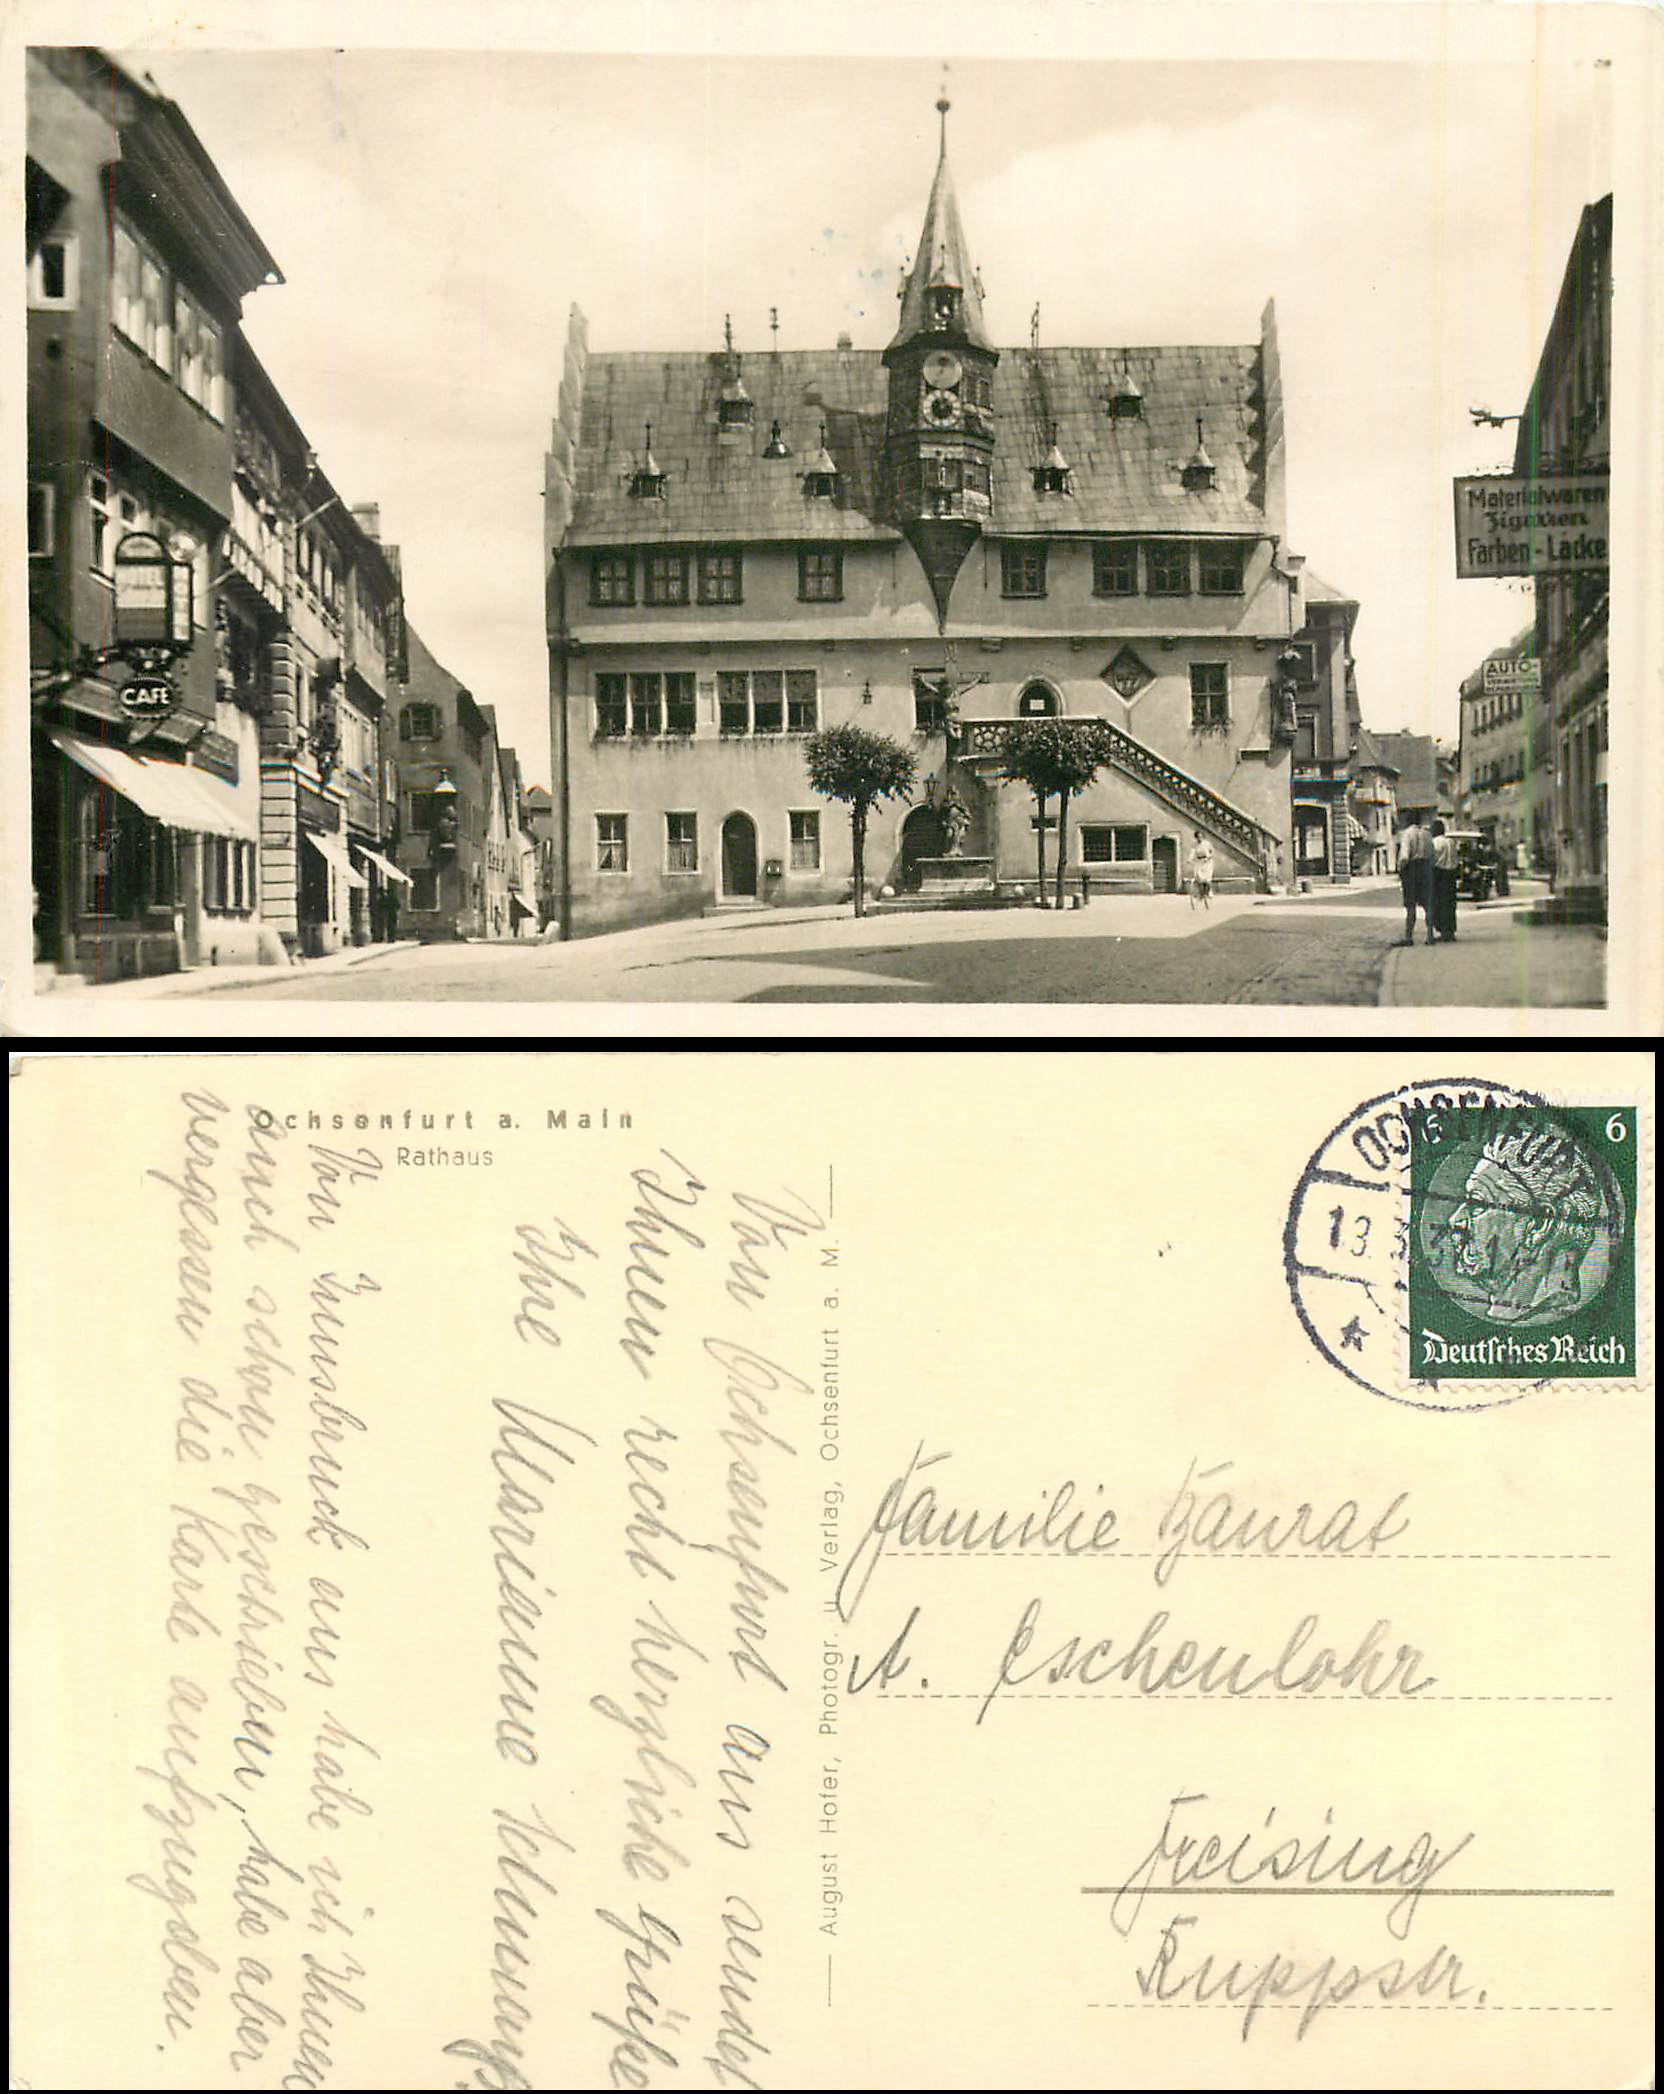 CAFE
Materialwaren
Zigarren
Farben - Lacke
AUTO-
Ochsenfurt a. Main
Rathaus
Von Ochsenfurt aus sendet
Ihnen recht herzliche Grüße
Ihre Marianne
Von Innsbruck aus habe ich Ihnen
auch schon geschrieben, habe aber
vergessen die Karte aufzugeben.
August Hofer, Photogr. u. Verlag, Ochsenfurt a. M.
OCHSENFURT
13.
6 6
Deutsches Reich
Familie
A. Eschenlohr
Freising
Ruppstr.